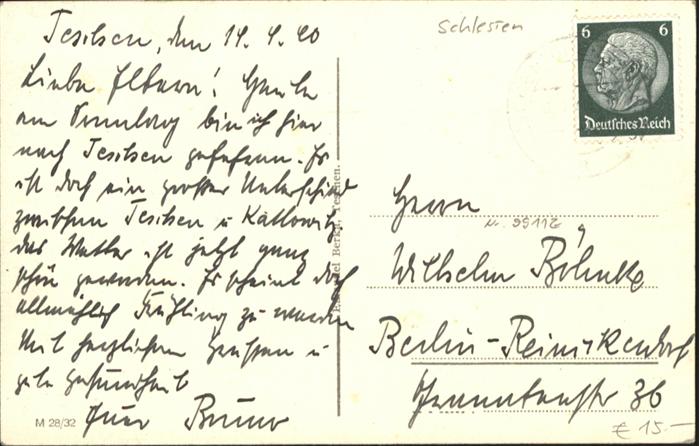 Teschen, den 14.4.40
Liebe Eltern! Heute
am Sonntag bin ich hier
nach Teschen gefahren. Es
ist doch ein großer Unterschied
zwischen Teschen u Kattowitz
das Wetter ist jetzt ganz
schön geworden. Es scheint doch
allmählich Frühling zu werden
Mit herzlichen Grüssen u
gute Gesundheit
Euer Bruno
M 28/32
Teschen.
Schlesien
6 6
Deutsches Reich
Herrn
Nr. 99112
Wilhelm Böhnke
Berlin-Reinickendorf
36
€ 15.-